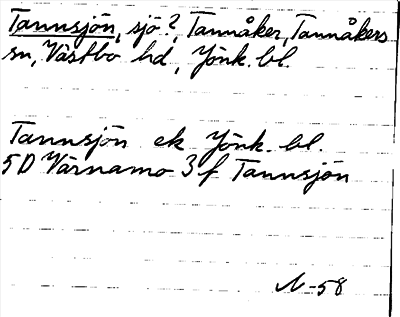 Tannsjön, sjö?, Tannåker, Tannåkers
sn, Västbo hd, Jönk. bl.
Tannsjön ek Jönk. bl.
5D Värnamo 3f Tannsjön
N-58